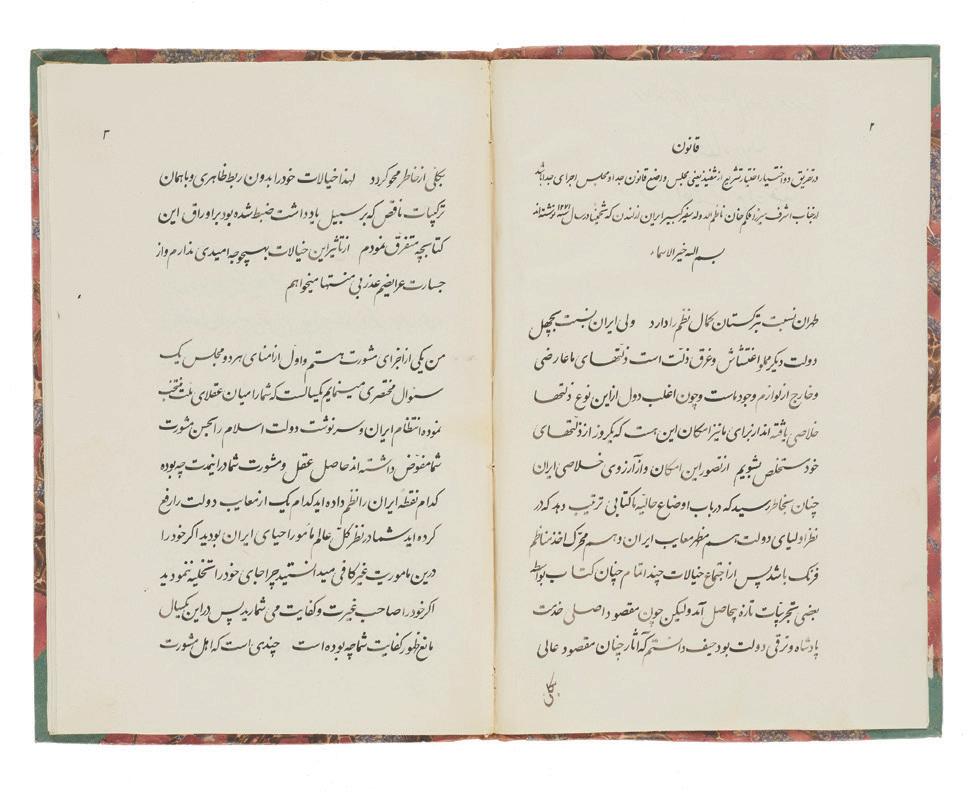 ۲
قانون
در تفریق دو اختیار اختیار تشریع از تنفیذ یعنی مجلس وضع قانون جدا و مجلس اجرای جدا باشد
از جناب اشرف میرزا ملکم خان ناظم الدوله سفیر کبیر ایران از لندن که شخصا در سال سنه ۱۲۷۱ نوشته اند
بسم الله خیر الاسماء
طهران نسبت بترکستان کمال نظم را دارد ولی ایران نسبت بچهل
دولت دیگر مملو اغتشاش و غرق ذلت است ذلتهای ما عارضی
و خارج از لوازم وجود ماست و چون اغلب دول از این نوع ذلتها
خلاصی یافته اند از برای ما نیز امکان این هست که یکروز از ذلتهای
خود مستخلص بشویم از تصور این امکان و از آرزوی خلاصی ایران
چنان بخاطر رسید که در باب اوضاع حالیه ما کتابی ترتیب دهد که در
نظر اولیای دولت هم مظهر معایب ایران و هم محرک اخذ مناظم
فرنگ باشد پس از اجتماع خیالات چند اتمام چنان کتاب بواسطه
بعضی تجربیات تازه بیحاصل آمد ولیکن چون مقصود اصلی خدمت
پادشاه و ترقی دولت بود حیف دانستم که آثار چنان مقصود عالی
بکلی
۳
بکلی از خاطر محو گردد لهذا خیالات خود را بدون ربط ظاهری و با همان
ترکیبات ناقص که بر سبیل یادداشت ضبط شده بود بر اوراق این
کتابچه متفرق نمودم از تأثیر این خیالات بهیچوجه امیدی ندارم و از
جسارت عرایضم عذر بی منتها میخواهم
من یکی از اجزای مشورت هستم و اول از امنای هر دو مجلس یک
سئوال مختصری مینمایم یکسالست که شما را میان عقلای ملت منتخب
نموده انتظام ایران و سرنوشت دولت اسلام را بحسن مشورت
شما مفوض داشته اند حاصل عقل و مشورت شما در اینمدت چه بوده
کدام نقطهٔ ایران را نظم داده اید کدام یک از معایب دولت را رفع
کرده اید شما در نظر کل عالم مأمور احیای ایران بودید اگر خود را
درین ماموریت غیر کافی میدانستید چرا جای خود را تخلیه ننمودید
اگر خود را صاحب غیرت و کفایت می شمارید پس در این یکسال
مانع ظهور کفایت شما چه بوده است چندی است که اهل مشورت